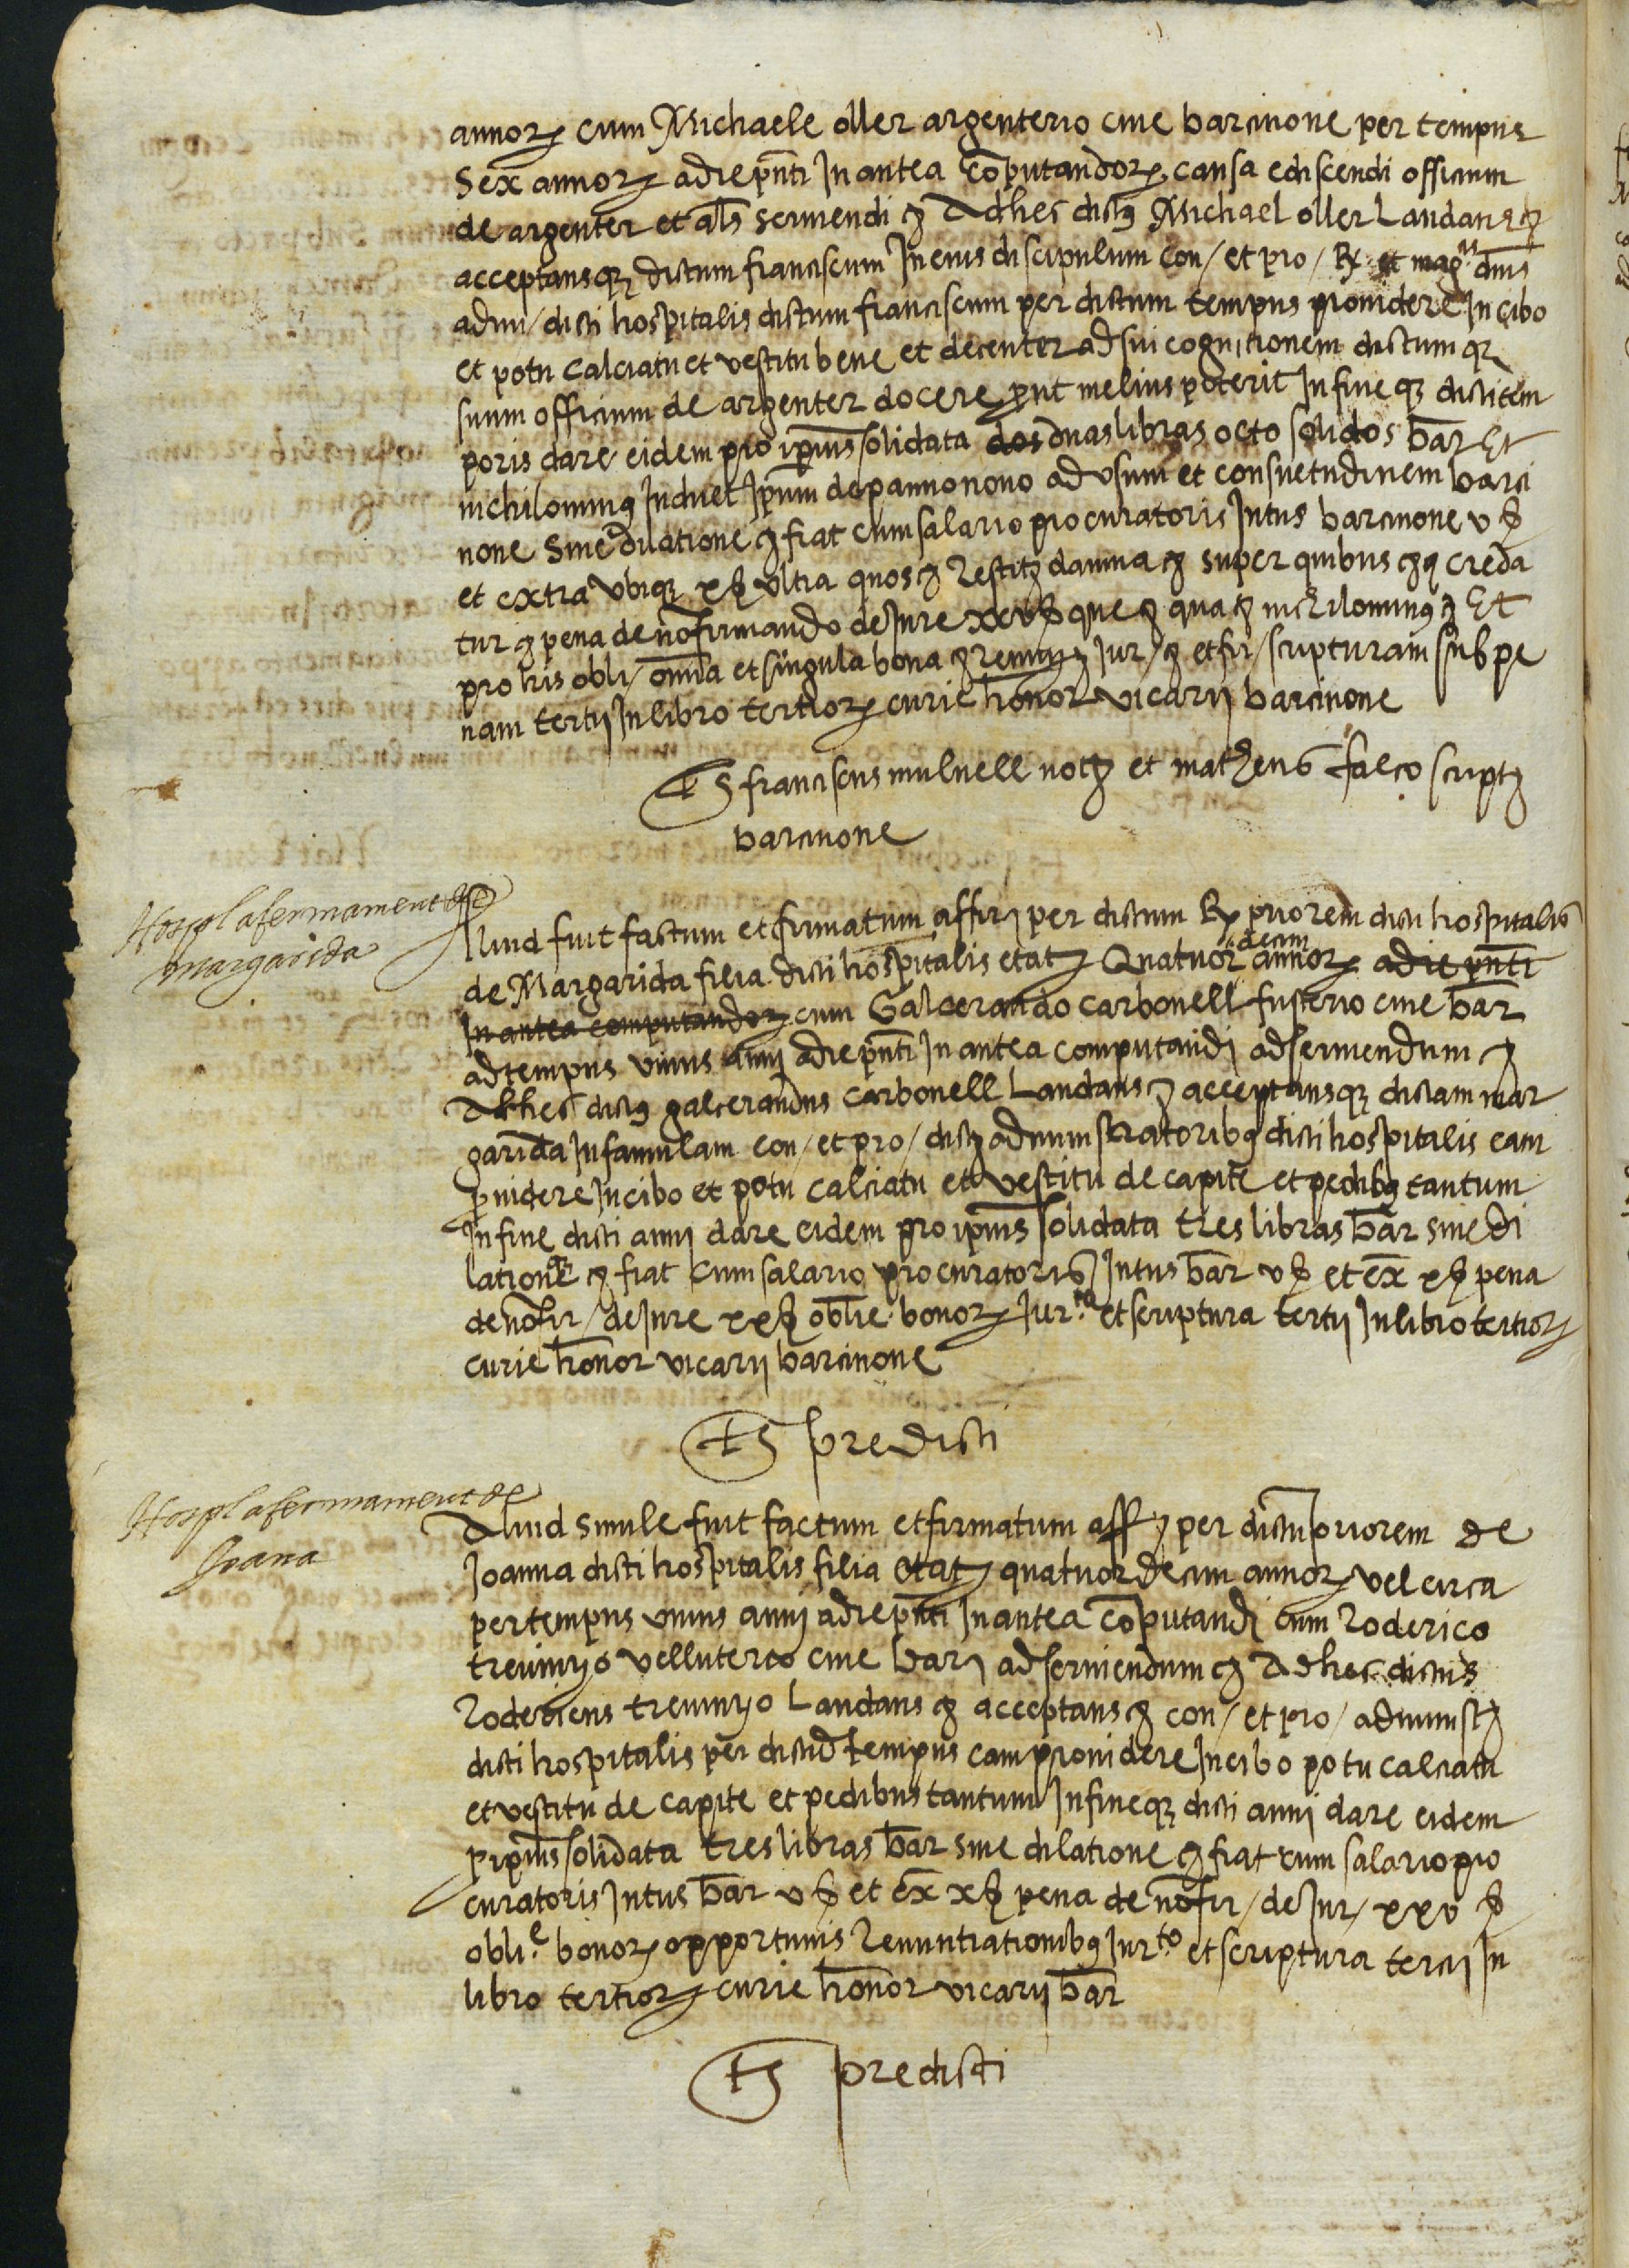 annoꝝ cum Michaele oller argenterio cive barcinone per tempus
Sex annoꝝ adie pñti In antea cõputandoꝝ causa ediscendi officium
de argenter et als serviendi ꝫ Adhec dictꝰ Michael oller Laudans ꝫ
acceptansqꝫ dictum franciscum In eius discipulum con/ et pro/ Rx et magcis dnis
admi/ dicti hospitalis dictum franciscum per dictum tempus providere In cibo
et potu calciatu et vestitu bene et decenter ad sui cognitionem dictumqꝫ
suum officium de argenter docere prut melius poterit In fineqꝫ dicti tem
poris dare eidem pro ipius solidata dos duas libras octo solidos bar Et
nichilominꝰ Induet Ipum de panno novo ad usum et consuetudinem barci
none Sine dilatione ꝫ fiat cum salario procuratoris Intus barcinone v ꝭ
et extra ubiqꝫ xꝭ ultra quos ꝫ Restitꝫ damna ꝫ super quibus ꝫ creda
tur ꝫ pena de nofirmando de Jure xxvꝭ que ꝫ qua ꝫ nichilominꝰ ꝫ Et
pro his obli/ omia et singula bona ꝫ renun ꝫ Jur/ ꝫ et fir/ scripturam sub pe
nam tertij In libro tertioꝝ curie honor vicarij barcinone
Ts franciscus mulnell notꝫ et matheus falco scriptꝫ
barcinone
Hospl afermament de
margarida
Aliud fuit factum et firmatum affirꝫ per dictum Rx priorem dicti hospitalis
de Margarida filia dicti hospitalis etatꝫ Quatuor decim annoꝝ adie pñti
In antea computandoꝝ cum Galcerando carbonell fusterio cive bar
ad tempus unius anni adie pñti In antea computandi ad serviendum ꝫ
Adhec dictꝰ galcerandus carbonell Laudans ꝫ acceptansqꝫ dictam mar
garida In famulam con/ et pro/ dictꝫ administratoribꝰ dicti hospitalis eam
pvidere In cibo et potu calciatu et vestitu de capite et pedibꝰ tantum
In fine dicti anni dare eidem pro ipius solidata tres libras bar sine di
latione ꝫ fiat cum salario procuratoris Intus bar vꝭ et ex xꝭ pena
de nofir/ de Jure xxꝭ oblie bonoꝝ Jur.to et scriptura tertij In libro tertioꝝ
curie honor vicarij barcinone
Ts predicti
Hospl afermament de
Joana
Aliud simile fuit factum et firmatum affꝫ per dictu priorem de
Joanna dicti hospitalis filia etatꝫ quatuordecim annoꝝ vel circa
per tempus unius anni adie pñti In antea cõputandi cum Roderico
trevinyo velluterio cive barꝫ ad serviendum ꝫ Adhec dictus
Rodericus trevinyo Laudans ꝫ acceptans ꝫ con/ et pro/ administꝫ
dicti hospitalis per dictud tempus eam providere In cibo potu calciatu
et vestitu de capite et pedibus tantum In fineqꝫ dicti anni dare eidem
p ipius solidata tres libras bar sine dilatione ꝫ fiat cum salario pro
curatoris Intus bar v ꝭ et ex xꝭ pena de nofir/ de Jur/ xxv ꝭ
obli.e bonoꝝ opportunis Renuntiationibꝰ Jur.to et scriptura tercij In
libro tertioꝝ curie honor vicarij bar
Ts predicti